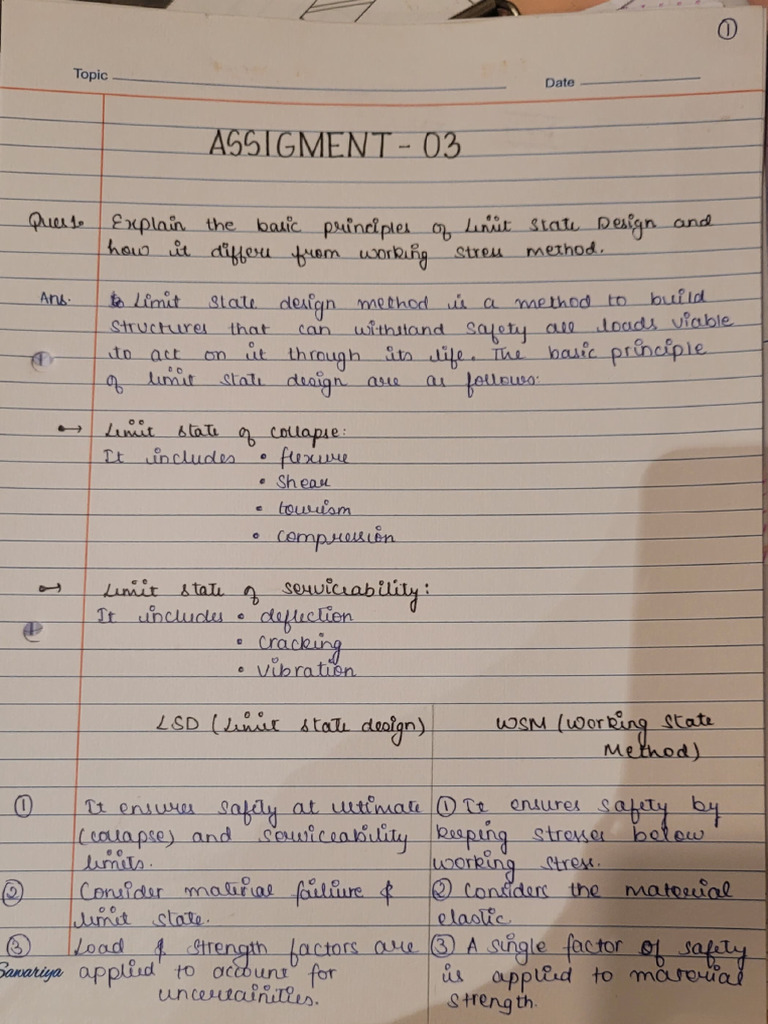 ①
Topic
Date
ASSIGMENT - 03
Ques1. Explain the basic principles of Limit State Design and
how it differs from working stress method.
Ans. Limit state design method is a method to build
structures that can withstand safety all loads viable
to act on it through its life. The basic principle
of limit state design are as follows:
Limit state of collapse:
It includes • flexure
• Shear
• tourism
• compression
Limit state of serviceability:
It includes • deflection
• cracking
• vibration
LSD (Limit state design)
WSM (Working State
Method)
① It ensures safety at ultimate
(collapse) and serviceability
limits.
① It ensures safety by
keeping stresses below
working stress.
② Consider material failure &
limit state.
② Considers the material
elastic
③ Load & strength factors are
applied to account for
uncertainities.
③ A single factor of safety
is applied to material
strength.
Sawariya